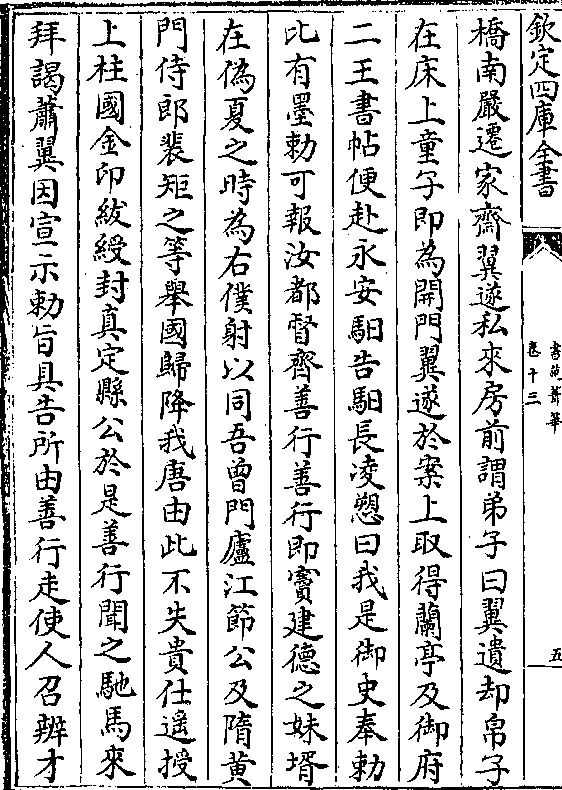 欽定四庫全書
書苑菁華
卷十三
五
橋南嚴遷家齋翼遂私來房前謂弟子曰翼遺却帛子
在床上童子即為開門翼遂於案上取得蘭亭及御府
二王書帖便赴永安馹告馹長凌愬曰我是御史奉勅
比有墨勅可報汝都督齊善行善行即竇建德之妹壻
在偽夏之時為右僕射以同吾曾門廬江節公及隋黄
門侍郎裴矩之等舉國歸降我唐由此不失貴仕遥授
上柱國金印紱綬封真定縣公於是善行聞之馳馬來
拜謁蕭翼因宣示勅旨具告所由善行走使人召辨才